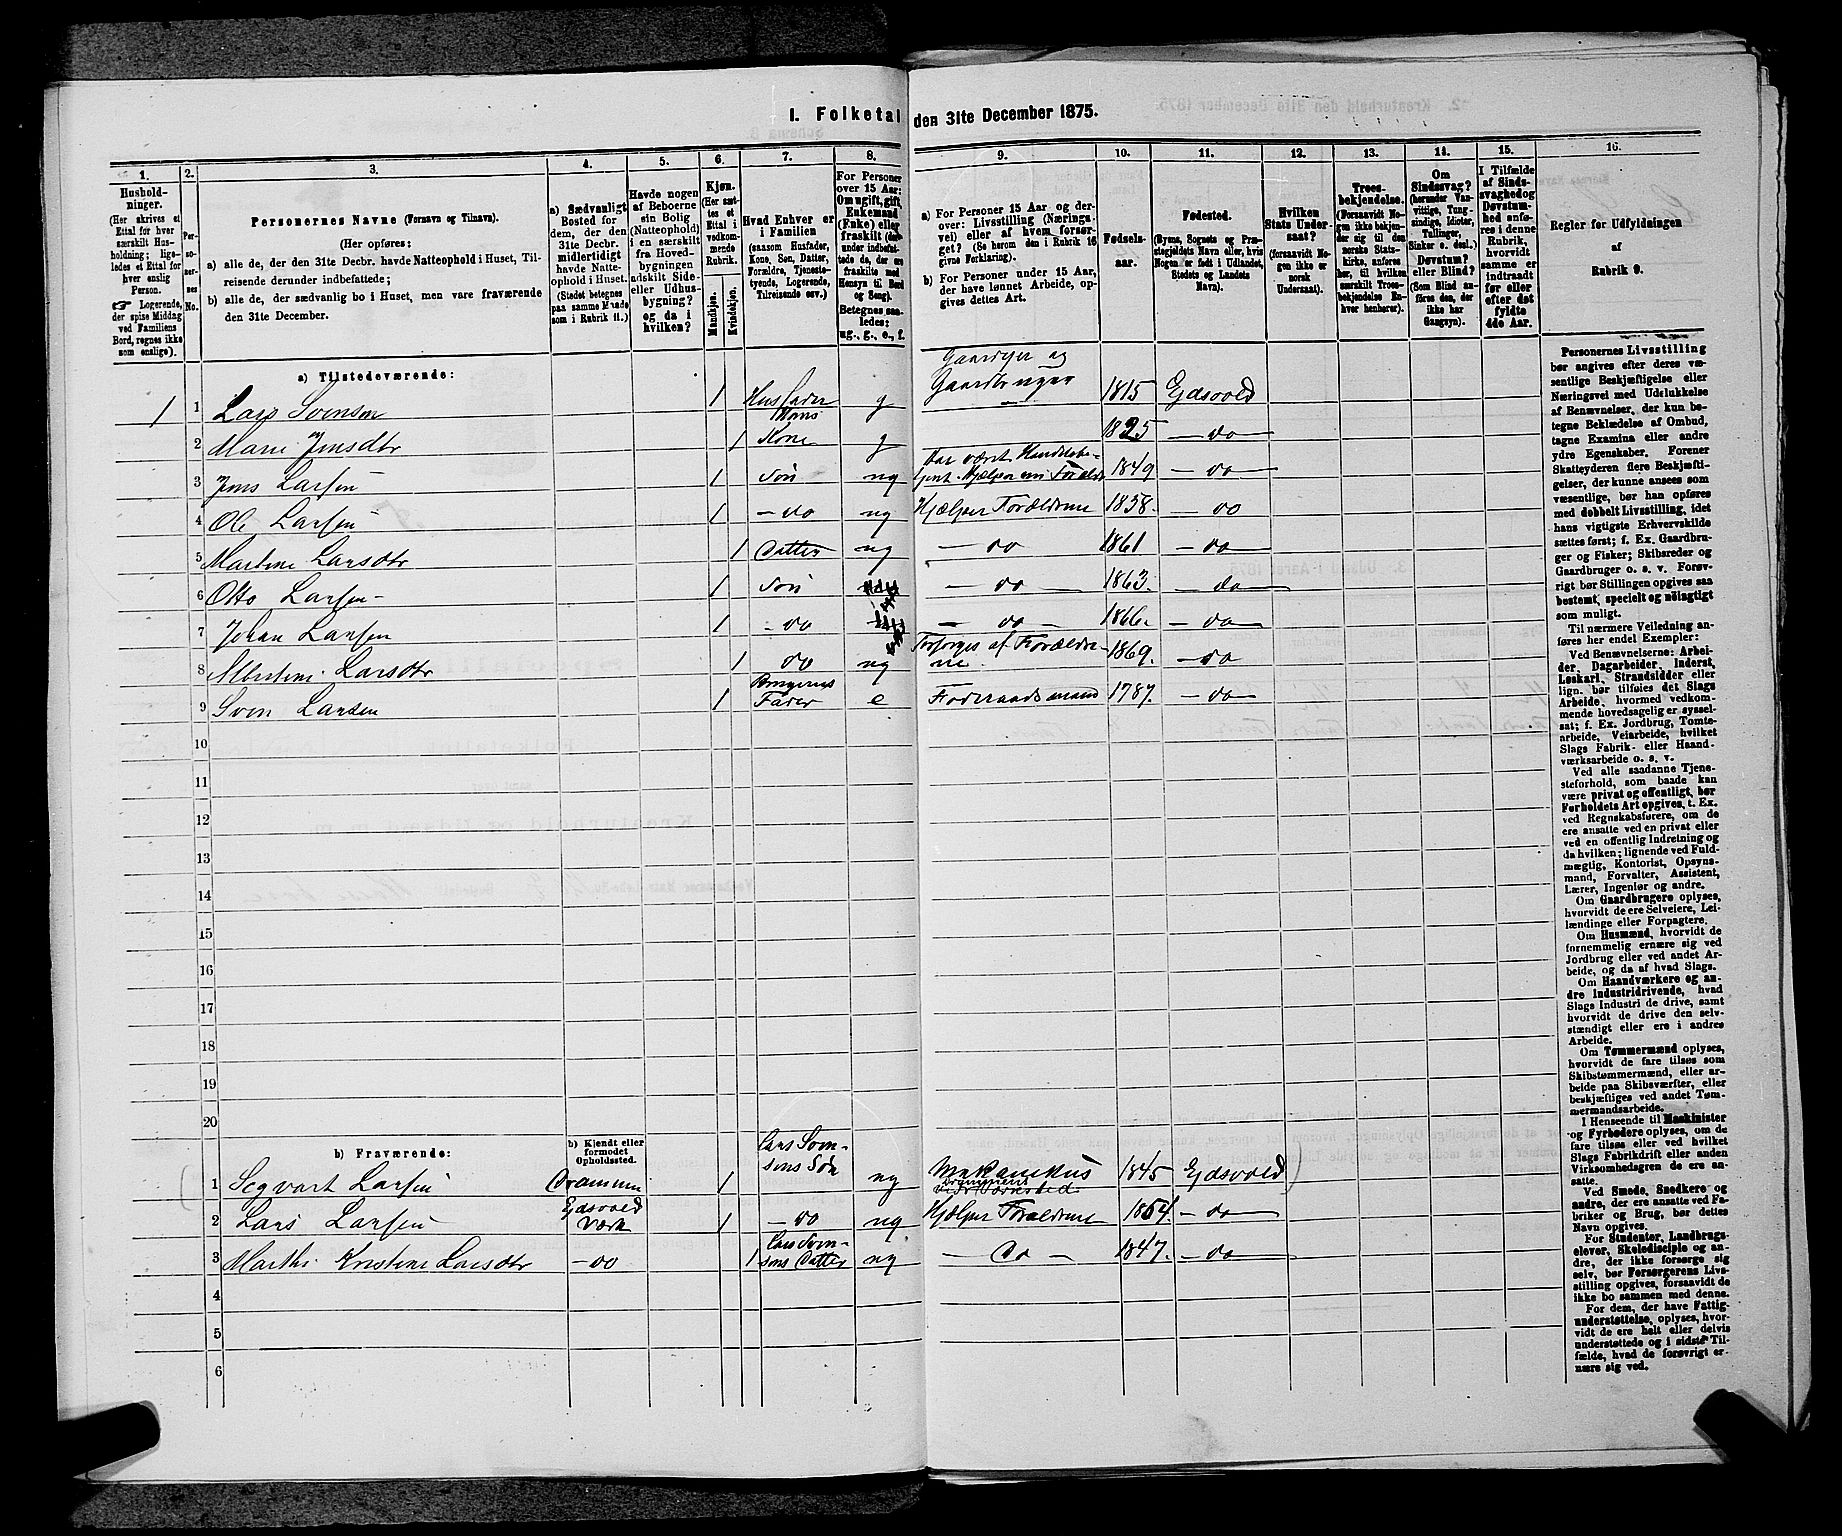 I. Folketal den 31te December 1875.
1. 2. 3. 4. 5. 6. 7. 8. 9. 10. 11. 12. 13. 14. 15. 16.
Hushold-
ninger.
(Her skrives et
Ettal for hver
særskilt Hus-
holdning; lige-
ledes et Ettal for
hver enslig
Person.
☞ Logerende,
der spise Middag
ved Familiens
Bord, regnes ikke
som enslige).
Per-
so-
ner-
nes
No.
Personernes Navne (Fornavn og Tilnavn).
(Her opføres:
a) alle de, der den 31te Decbr. havde Natteophold i Huset, Til-
reisende derunder indbefattede;
b) alle de, der sædvanlig bo i Huset, men vare fraværende
den 31te December.
a) Sædvanligt
Bosted for
dem, der den
31te Decbr.
midlertidigt
havde Natte-
ophold i Huset.
(Stedet betegnes
paa samme Maade
som i Rubrik 11.)
Havde nogen
af Beboerne
sin Bolig
(Natteophold)
i en særskilt
fra Hoved-
bygningen
adskilt Side-
eller Udhus-
bygning?
og da i
hvilken?
Kjøn.
(Her sæt-
tes et
Ettal i
vedkom-
mende
Rubrik.
Mandkjøn.
Kvindekjøn.
Hvad Enhver er
i Familien
(saasom Husfader,
Kone, Søn, Datter,
Forældre, Tjeneste-
tyende, Logerende,
Tilreisende osv.)
For Personer
over 15 Aar:
Om ugift, gift,
Enkemand
(Enke) eller
fraskilt (der-
under indbefat-
tede de, der ere
fraskilte med
Hensyn til Bord
og Seng).
Betegnes saa-
ledes:
ug., g., e., f.
a) For Personer 15 Aar og der-
over: Livsstilling (Nærings-
vei) eller af hvem forsør-
get? (Se herom den i Rubrik 16
givne Forklaring).
b) For Personer under 15 Aar,
der have lønnet Arbeide, op-
gives dettes Art.
Fødsels-
aar.
Fødested.
(Byens, Sognets og Præ-
stegjeldets Navn eller, hvis
Nogen er født i Udlandet,
Stedets og Landets
Navn).
Hvilken
Stats Under-
saat?
(forsaavidt No-
gen ikke er
norsk
Undersaat).
Troes-
bekjendelse.
(Forsaavidt No-
gen ikke bekjen-
der sig til den
norske Stats-
kirke, anføres
her, til hvilken
særskilt Troes-
bekjendelse En-
hver henhører).
Om
Sindssvag?
(herunder Van-
vittige, Tung-
sindige, Idioter,
Tullinger,
Sinker o. desl.)
Døvstum?
eller Blind?
(Som Blind an-
føres den, der
ikke har
Gangsyn).
I Tilfælde
af Sinds-
svaghed og
Døvstum-
hed anfø-
res i denne
Rubrik,
hvorvidt
samme er
indtraadt
før eller
efter det
fyldte
4de Aar.
Regler for Udfyldningen
af
Rubrik 9.
a) Tilstedeværende:
Gaardejer og
1 1 Lars Svensen 1 Husfader g Gaardbruger 1815 Ejdsvold
2 Marie Jensdtr 1 Hans Kone g 1825 — do —
3 Jens Larsen 1 Søn ug Har været Handelsbe-
tjent. Hjælper sin Foræld 1849 — do
4 Ole Larsen 1 — do ug Hjælper Forældrene 1858. — do
5 Martine Larsdtr 1 Datter ug — do 1861 — do
6 Otto Larsen 1 Søn — do 1863. — do
7 Johan Larsen 1 — do — do — 1866. — do
8 Albertine Larsdtr 1 do ug Forsørges af Forældre-
ne 1869. — do
9 Sven Larsen 1 Brugerens Fader e Føderaadsmand 1787. — do
10
11
12
13
14
15
16
17
18
19
20
b) Fraværende:
b) Kjendt eller
formodet
Opholdssted.
1 Segvart Larsen Drammen 1 Lars Sven-
sens Søn ug Mekanikus
ved Drammens Værksted 1845 Ejdsvold
2 Lars Larsen Ejdsvold
Værk 1 — do ug Hjælper Forældrene 1854. — do
3 Marthe Kristine Larsdtr — do 1 Lars Sven-
sens Datter ug — Do — 1847. — do
4
5
6
Personernes Livsstilling
bør angives efter deres væ-
sentlige Beskjæftigelse eller
Næringsvei med Udelukkelse
af Benævnelser, der kun be-
tegne Beklædelse af Ombud,
tagne Examina eller andre
ydre Egenskaber. Forener
Skatteyderen flere Beskjæfti-
gelser, der kunne ansees som
væsentlige, bør han opføres
med dobbelt Livsstilling, idet
hans vigtigste Erhvervskilde
sættes først; f. Ex. Gaardbru-
ger og Fisker; Skibsreder og
Gaardbruger o. s. v. Forøv-
rigt bør Stillingen opgives saa
bestemt, specielt og nøiagtigt
som muligt.
Til nærmere Veiledning an-
føres her endel Exempler:
Ved Benævnelserne: Arbei-
der, Dagarbeider, Inderst,
Løskarl, Strandsidder eller
lign. bør tilføies det Slags
Arbeide, hvormed vedkom-
mende hovedsagelig er syssel-
sat; f. Ex. Jordbrug, Tomte-
arbeide, Veiarbeide, hvilket
Slags Fabrik- eller Haand-
værksarbeide o. s. v.
Ved alle saadanne Tjene-
steforhold, som baade kan
være privat og offentligt, bør
Forholdets Art opgives, t. Ex.
ved Regnskabsførere, om de
ere ansatte ved en privat eller
ved en offentlig Indretning og
da hvilken; lignende ved Fuld-
mægtig, Kontorist, Opsyns-
mand, Forvalter, Assistent,
Lærer, Ingeniør og andre.
Om Gaardbrugere oplyses,
hvorvidt de ere Selveiere, Lei-
lændinge eller Forpagtere.
Om Husmænd, hvorvidt de
fornemmelig ernære sig ved
Jordbrug eller ved andet Ar-
beide, og da af hvad Slags.
Om Haandværkere og an-
dre Industridrivende, hvad
Slags Industri de drive, samt
hvorvidt de drive den selv-
stændigt eller ere i andres
Arbeide.
Om Tømmermænd oplyses,
hvorvidt de fare tilsøs som
Skibstømmermænd, eller ar-
beide paa Skibsværfter, eller
beskjæftiges ved andet Tøm-
mermandsarbeide.
I Henseende til Maskinister
og Fyrbødere oplyses, om de
fare tilsøs eller ved hvilket
Slags Fabrikdrift eller anden
Virksomhedsgren de ere an-
satte.
Ved Smede, Snedkere og
andre, der ere ansatte ved Fa-
briker og Brug, bør dettes
Navn opgives.
For Studenter, Landbrugs-
elever, Skoledisciple og an-
dre, der ikke forsørge sig
selv, bør Forsørgerens Livs-
stilling opgives, forsaavidt de
ikke bo sammen med denne.
For dem, der have Fattig-
understøttelse, oplyses, hvor-
vidt de ere helt eller delvis
understøttede og i sidste Til-
fælde, hvad de forøvrigt er-
nære sig ved.